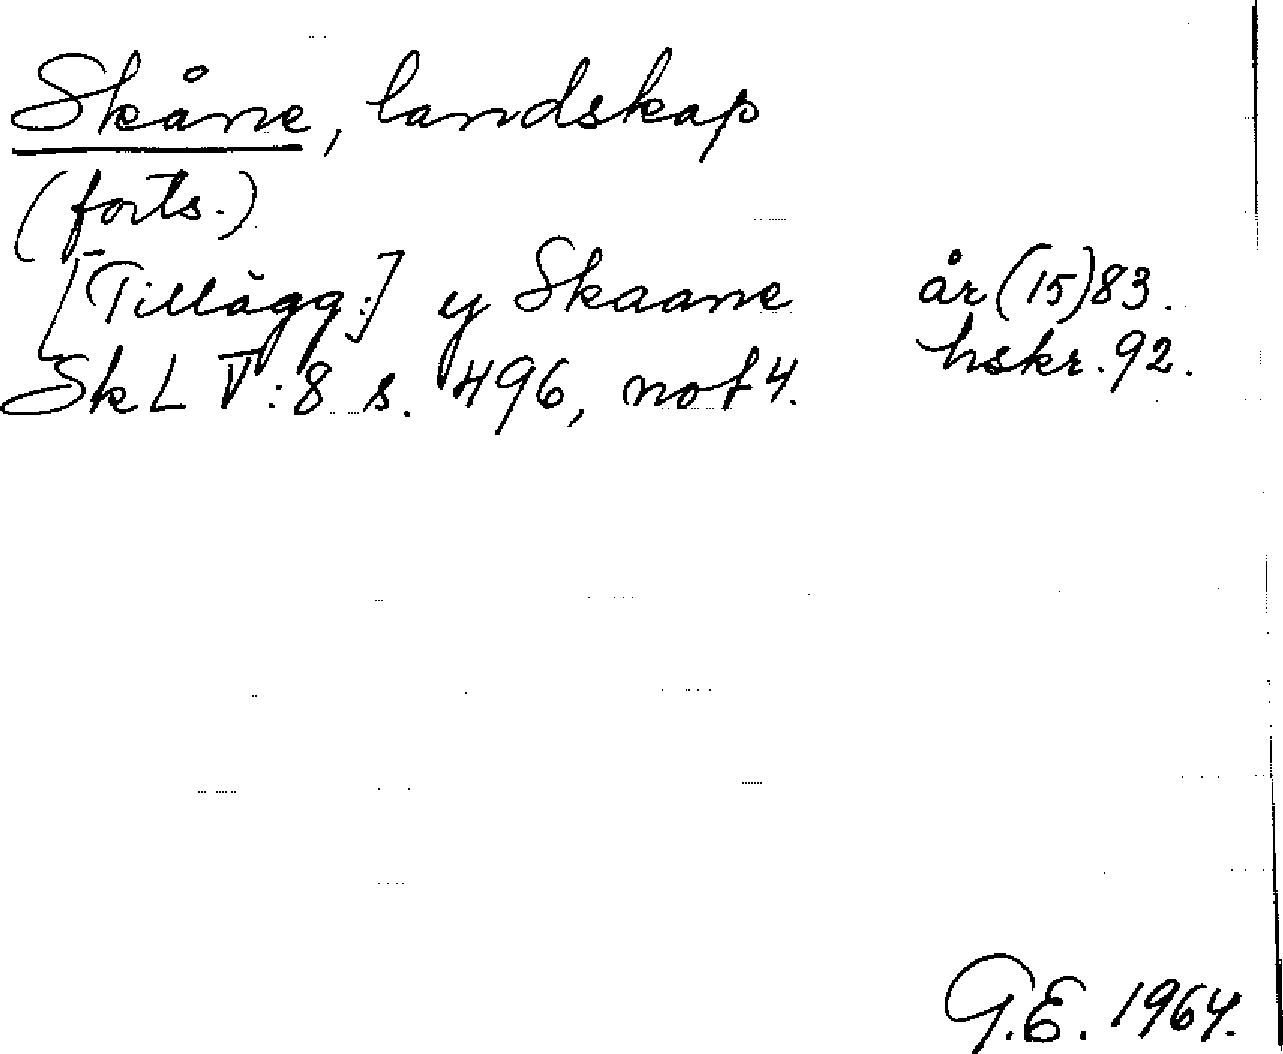 Skåne, landskap
(forts.)
[Tillägg:] y Skaane år (15)83.
hskr. 92.
SkL V:8 s. 496, not 4.
G.E. 1964.